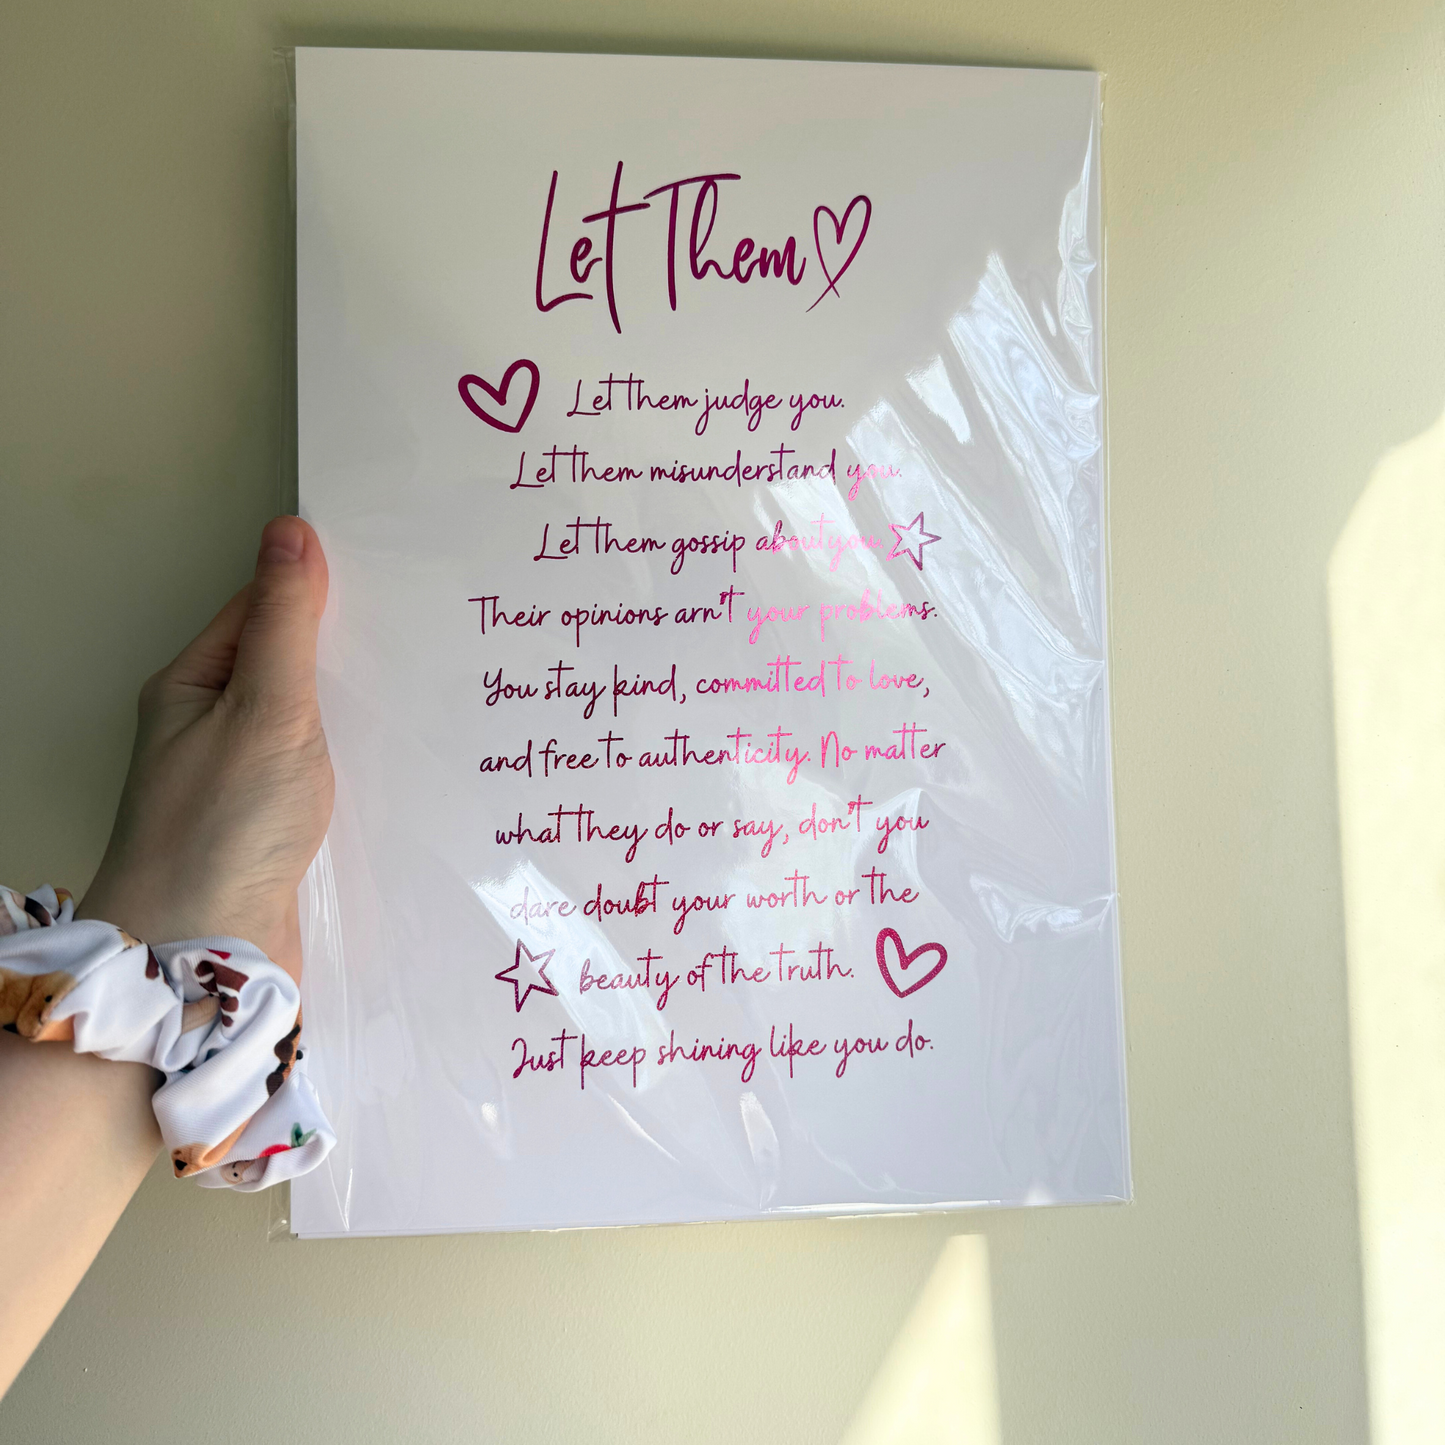 Let Them
Let them judge you.
Let them misunderstand you.
Let them gossip about you.
Their opinions arn't your problems.
You stay kind, committed to love,
and free to authenticity. No matter
what they do or say, don't you
dare doubt your worth or the
beauty of the truth.
Just keep shining like you do.